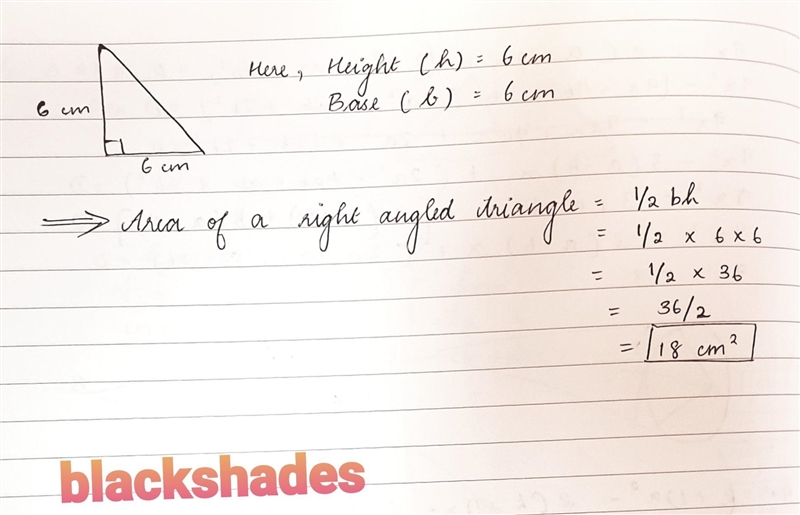 Here, Height (h) = 6 cm
Base (b) = 6 cm
6 cm
6 cm
⟹ Area of a right angled triangle = 1/2 bh
= 1/2 x 6 x 6
= 1/2 x 36
= 36/2
= 18 cm²
blackshades